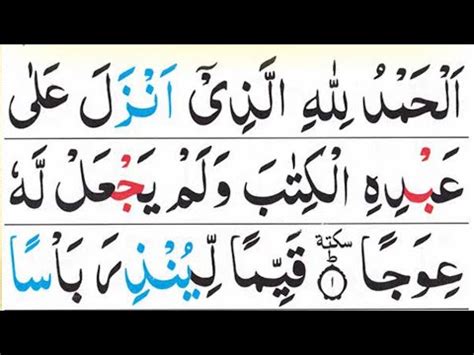 اَلْحَمْدُ لِلّٰهِ الَّذِیْۤ اَنْزَلَ عَلٰی
عَبْدِهِ الْكِتٰبَ وَلَمْ یَجْعَلْ لَّهٗ
عِوَجًا ؕ سكتة ۝۱ قَیِّمًا لِّیُنْذِرَ بَاْسًا